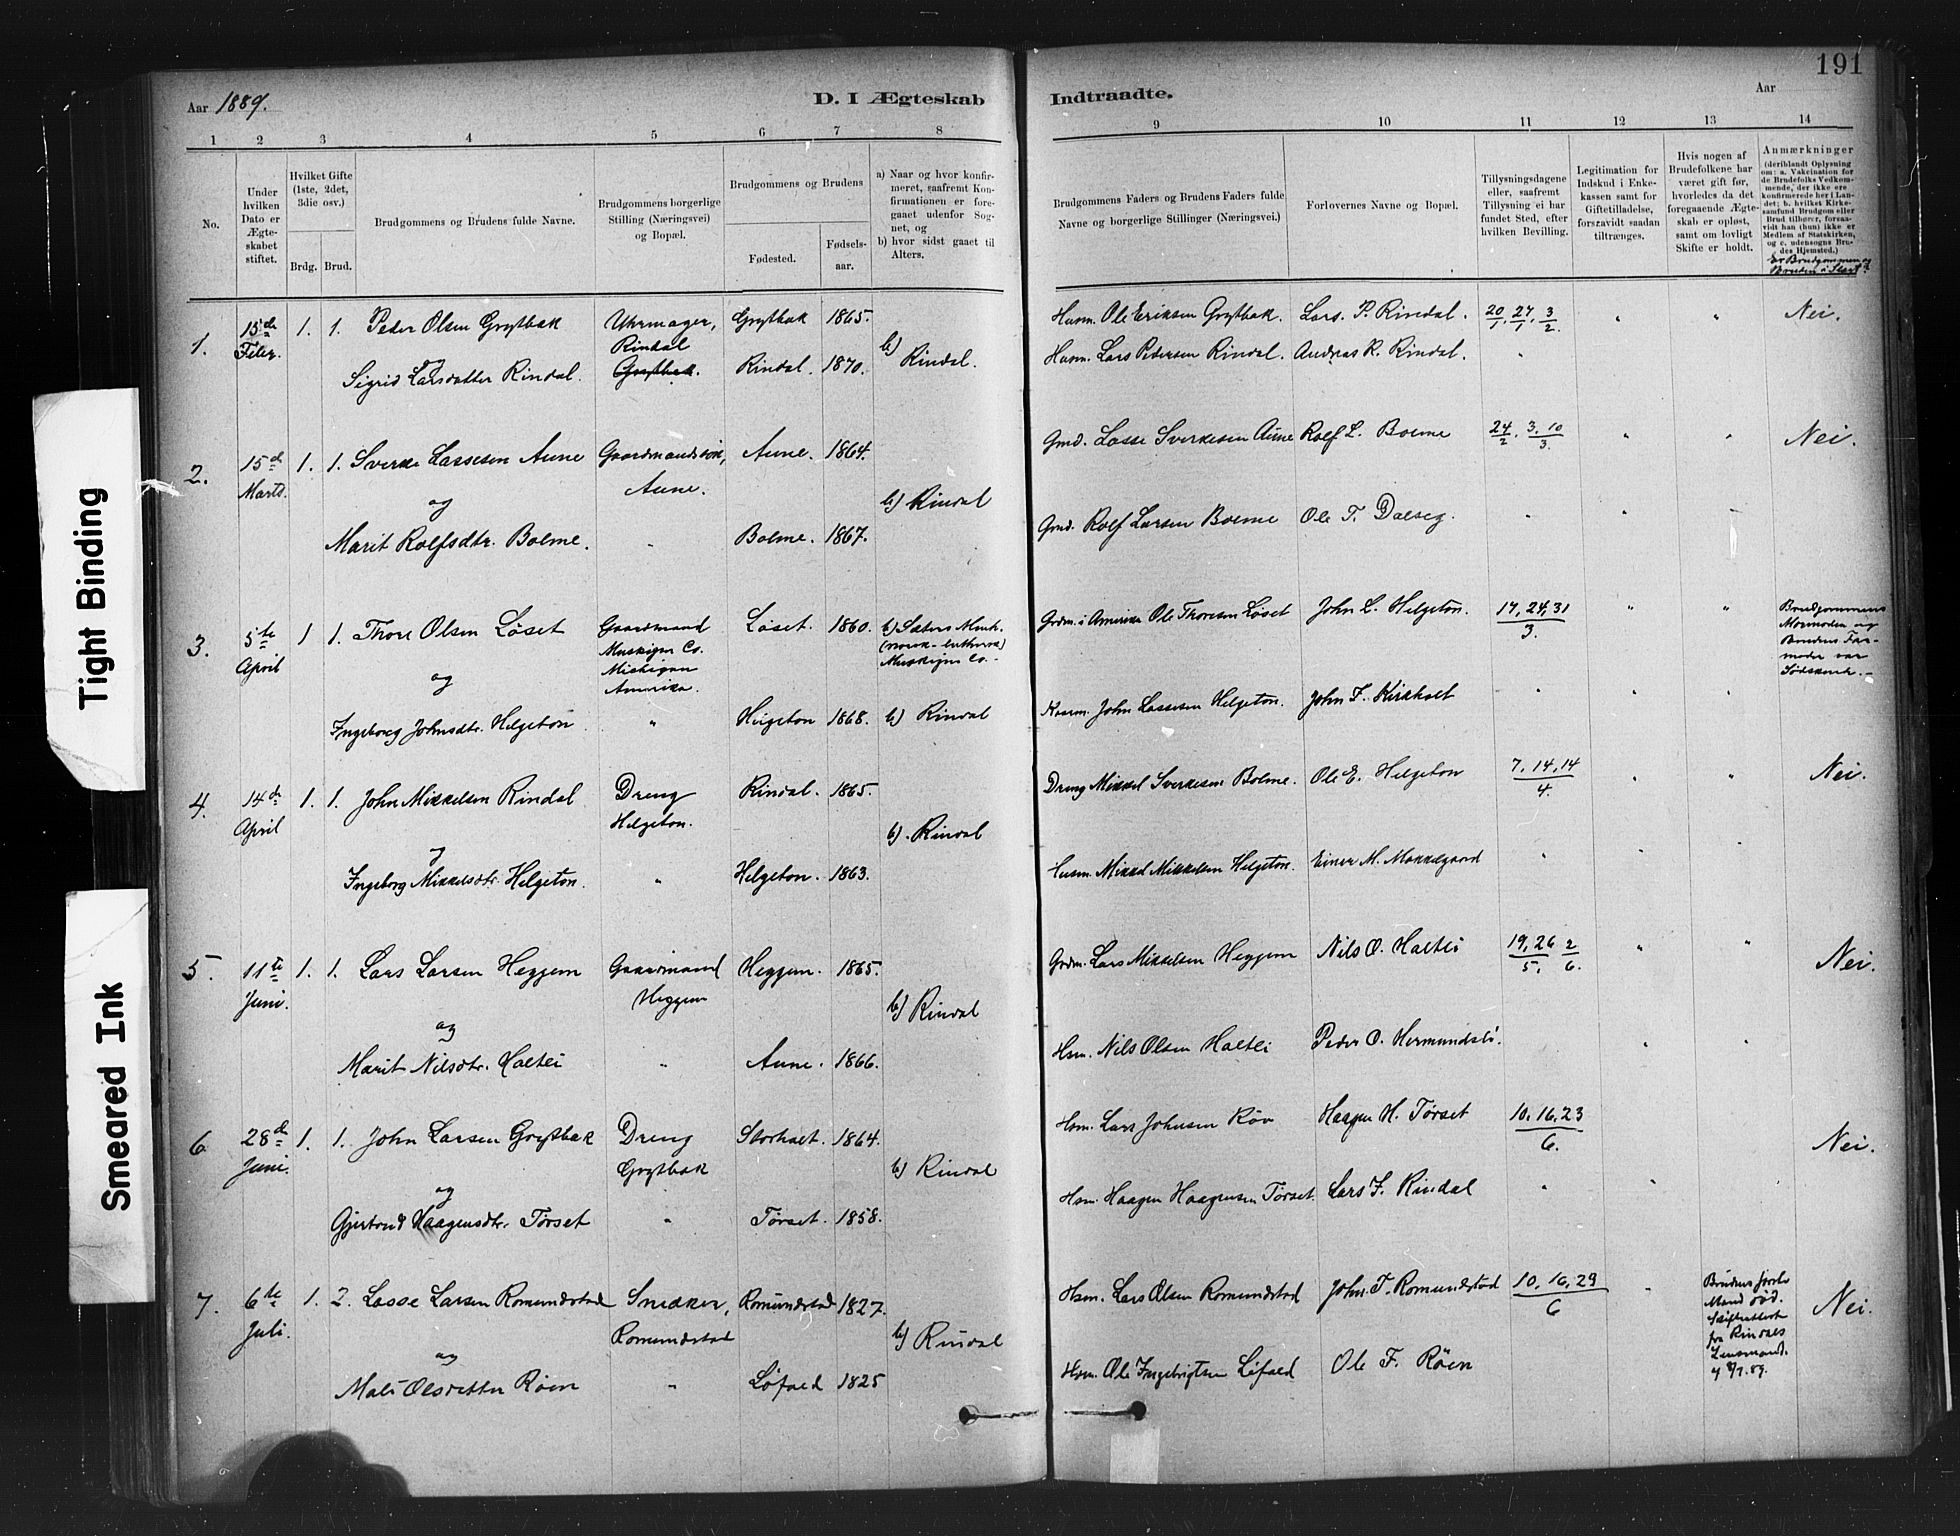 Tight Binding
Smeared Ink
191
Aar 1889.
D. I Ægteskab
Indtraadte.
Aar
1 2 3 4 5 6 7 8
9 10 11 12 13 14
No.
Under hvilken Dato er Ægteskabet stiftet.
Hvilket Gifte (1ste, 2det, 3die osv.)
Brdg. Brud.
Brudgommens og Brudens fulde Navne.
Brudgommens borgerlige Stilling (Næringsvei) og Bopæl.
Brudgommens og Brudens
Fødested.
Fødselsaar.
a) Naar og hvor konfirmeret, saafremt Konfirmationen er foregaaet udenfor Sognet, og
b) hvor sidst gaaet til Alters.
Brudgommens Faders og Brudens Faders fulde Navne og borgerlige Stillinger (Næringsvei.)
Forlovernes Navne og Bopæl.
Tillysningsdagene eller, saafremt Tillysning ei har fundet Sted, efter hvilken Bevilling.
Legitimation for Indskud i Enkekassen samt for Giftetilladelse, forsaavidt saadan tiltrænges.
Hvis nogen af Brudefolkene har været gift før, hvorledes da det foregaaende Ægteskab er opløst, samt om lovligt Skifte er holdt.
Anmærkninger (deriblandt Oplysning om: a. Vakcination for de Brudefolks Vedkommende, der ikke ere konfirmerede her i Landet; b. hvilket Kirkesamfund Brudgom eller Brud tilhører, forsaavidt han (hun) ikke er Medlem af Statskirken, og c. udensogns Brudes Hjemsted.)
Er Brudgommen og Bruden i Slægt?
1. 15de Febr. 1. 1. Peder Olsen Grytbak Uhrmager, Rindal Grytbak 1865. b) Rindal.
og
Sigrid Larsdatter Rindal. Grytbak. Rindal. 1870.
Husm. Ole Eriksen Grytbak. Lars. P. Rindal. 20/1, 27/1, 3/2. " " Nei.
Husm. Lars Pedersen Rindal. Andras R. Rindal. "
2. 15de Marts. 1. 1. Sverke Lassesen Aune Gaardmandssøn, Aune. Aune. 1864.
og b) Rindal
Marit Rolfsdtr. Bolme. " Bolme. 1867.
Gmd. Lasse Sverkesen Aune Rolf L. Bolme 24/2, 3, 10/3. " " Nei.
Gmd. Rolf Larsen Bolme Ole T. Dalseg. " "
3. 5te April 1 1. Thore Olsen Løset Gaardmand Muskigon Co. Michigan Amerika. Løset. 1860. b) Sæters Menh. (norsk-luthersk) Muskigon Co.
og
Ingeborg Johnsdtr. Helgeton " Helgeton 1868. b) Rindal
Grdm. i Amerika Ole Thoresen Løset John L. Helgeton. 17, 24, 31/3. " " Brudgommens Mormoder og Brudens Farmoder var Sødskende.
John Lassesen Helgeton. John F. Kirkholt " " "
4. 14de April 1. 1. John Mikkelsen Rindal Dreng Helgeton. Rindal. 1865.
og b). Rindal
Ingeborg Mikkelsdtr. Helgeton. " Helgeton. 1863.
Dreng Mikkel Sverkesen Bolme. Ole E. Helgeton 7, 14, 14/4. " " Nei.
Husm. Mikkel Mikkelsen Helgeton. Einer M. Mokkelgaard " " "
5. 11te Juni. 1. 1. Lars Larsen Heggem Gaardmand Heggem Heggem. 1865.
og b) Rindal
Marit Nilsdtr. Holtli " Aune. 1866.
Grdm. Lars Mikkelsen Heggem Nils O. Holtli 19, 26/5. 2/6. " " Nei.
Hsm. Nils Olsen Holtli Peder O. Hermundsli. " "
6. 28de Juni. 1. 1. John Larsen Grytbak Dreng Grytbak Storholt. 1864.
og b) Rindal
Gjertrud Haagensdtr. Tørset " Tørset. 1858.
Hsm. Lars Johnsen Røv Haagen H. Tørset 10, 16, 23/6. Nei.
Hsm. Haagen Haagensen Tørset. Lars F. Rindal " "
7. 6te Juli. 1. 2. Lasse Larsen Romundstad Snedker, Romundstad Romundstad 1827.
og b) Rindal
Mali Olsdatter Røen " Løfald 1825
Hsm. Lars Olsen Romundstad John. T. Romundstad 10, 16, 29/6 " Brudens første Mand død. Skifteattest fra Rindals Lensmand. Nei.
Hsm. Ole Ingebrigtsen Løfald Ole F. Røen